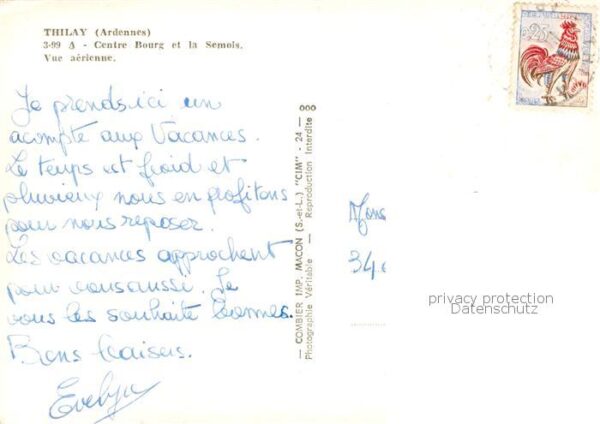 THILAY (Ardennes)
3-99 A - Centre Bourg et la Semois.
Vue aérienne.
Je prends ici un
acompte aux Vacances.
Le temps est froid et
pluvieux nous en profitons
pour nous reposer.
Les vacances approchent
pour vous aussi. Je
vous les souhaite bonnes.
Bons baisers.
Evelyne
— COMBIER IMP. MACON (S.-et-L.) "CIM" - 24 — 000
Photographie Véritable — Reproduction Interdite
0,25
34
privacy protection
Datenschutz